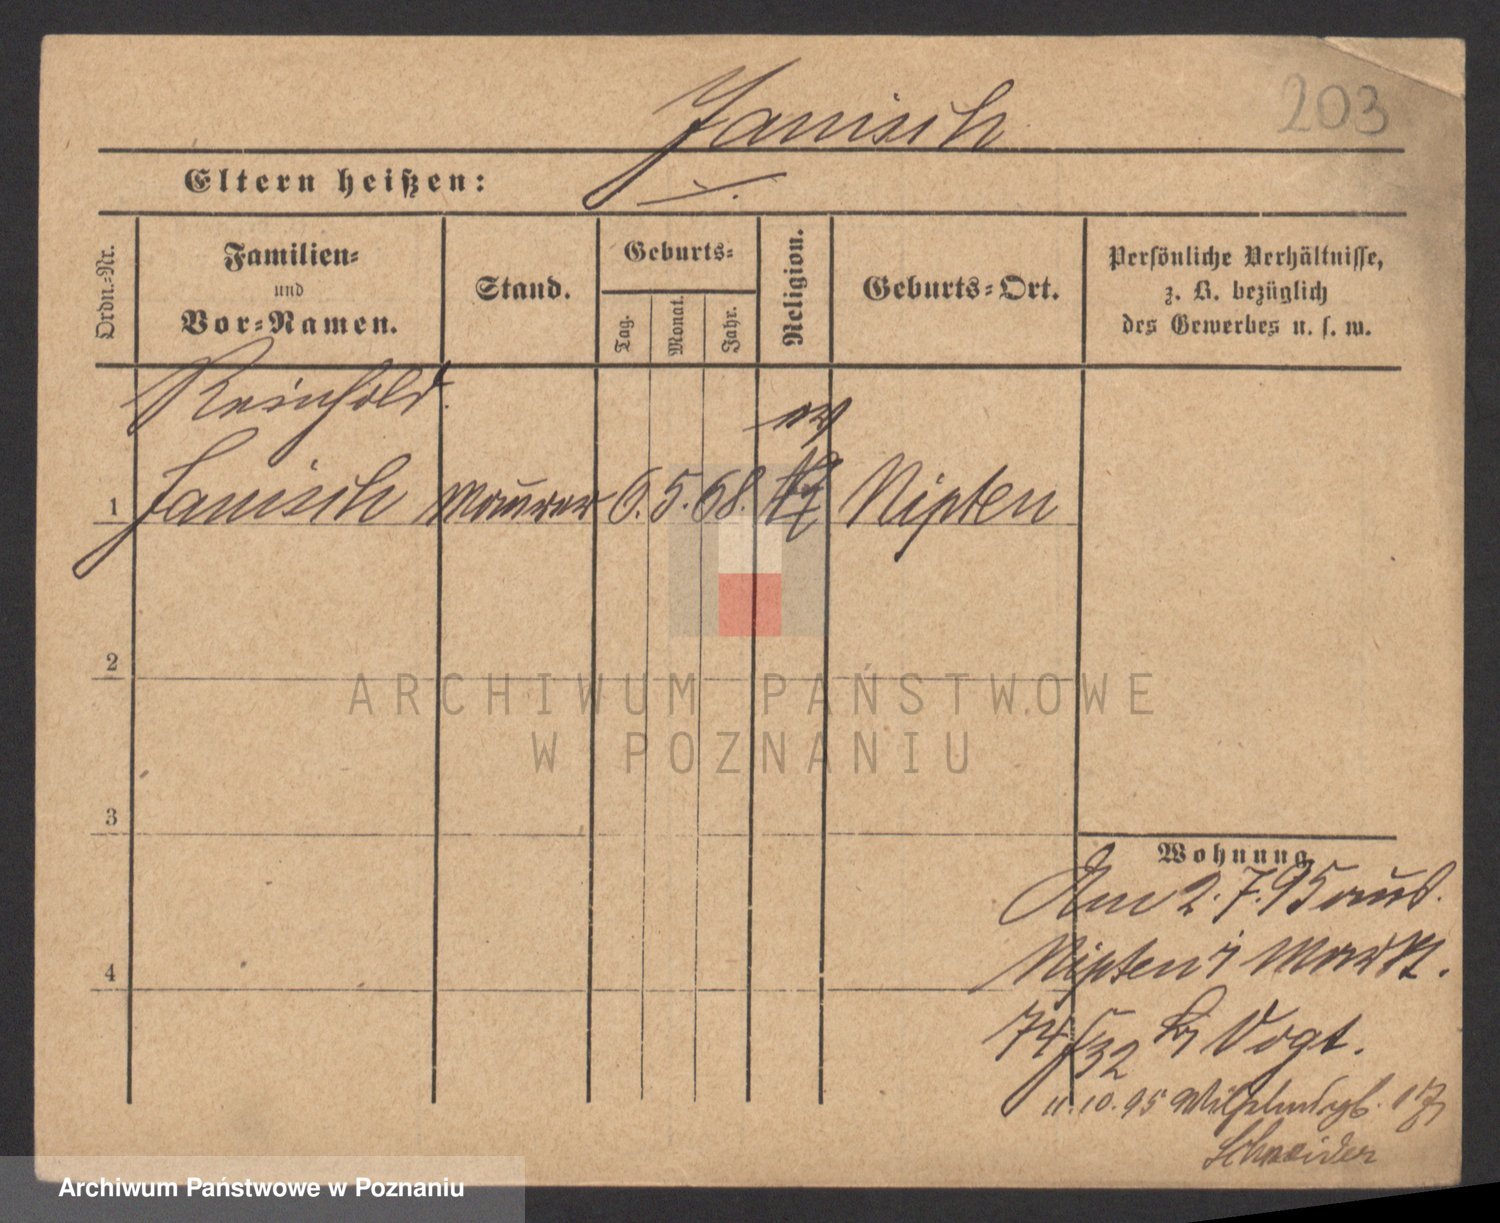 203
Janisch
Eltern heißen:
Ordn.=Nr.
Familien=
und
Vor=Namen.
Stand.
Geburts=
Tag.
Monat.
Jahr.
Religion.
Geburts=Ort.
Persönliche Verhältnisse,
z. B. bezüglich
des Gewerbes u. s. w.
Reinhold
ev
1 Janisch Maurer 6. 5. 68. Nipten
2
3
4
Wohnung
Am 2. 7. 95 aus
Nipten Markt.
74/32 Vogt.
11. 10. 95 17
Schneider
ARCHIWUM PAŃSTWOWE
W POZNANIU
Archiwum Państwowe w Poznaniu